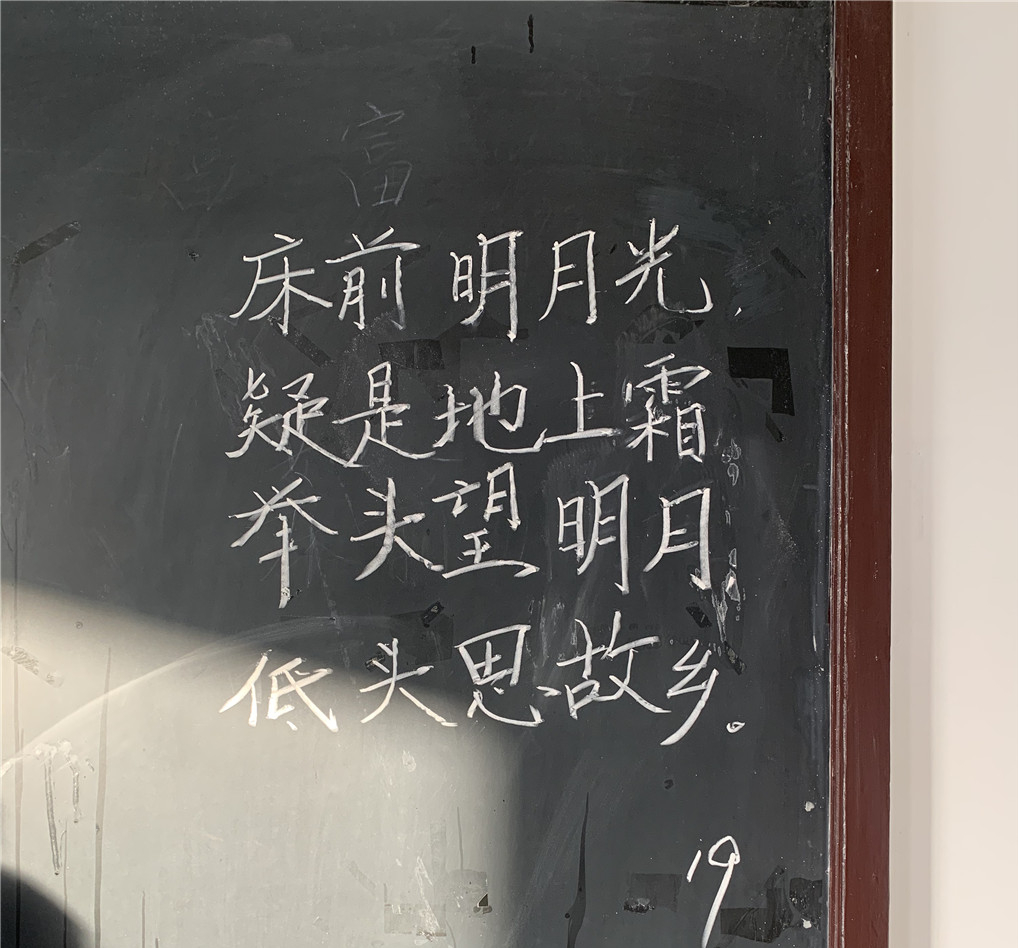 床前明月光，
疑是地上霜
举头望明月，
低头思故乡。
19